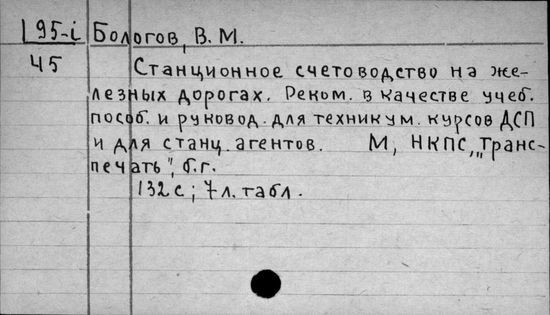 L 95-i Бологов, В. М.
45 Станционное счетоводство на же-
лезных дорогах. Реком. в качестве учеб.
пособ. и руковод. для техникум. курсов ДСП
и для станц. агентов. М, НКПС, „Транс-
печать", б. г.
132 с; 7 л. табл.